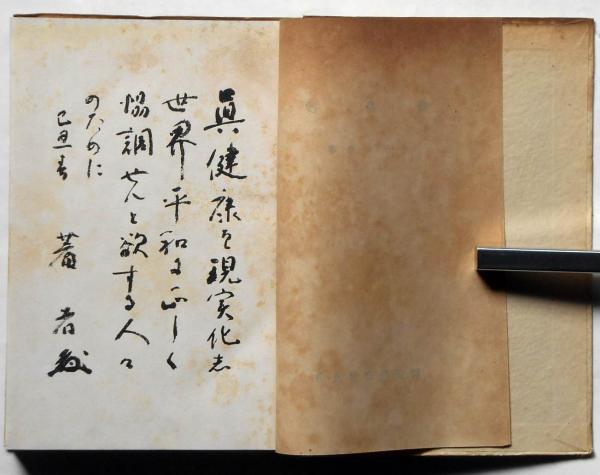 眞健康を現実化志
世界平和に正しく
協調せんと欲する人々
のために
己丑春
著者